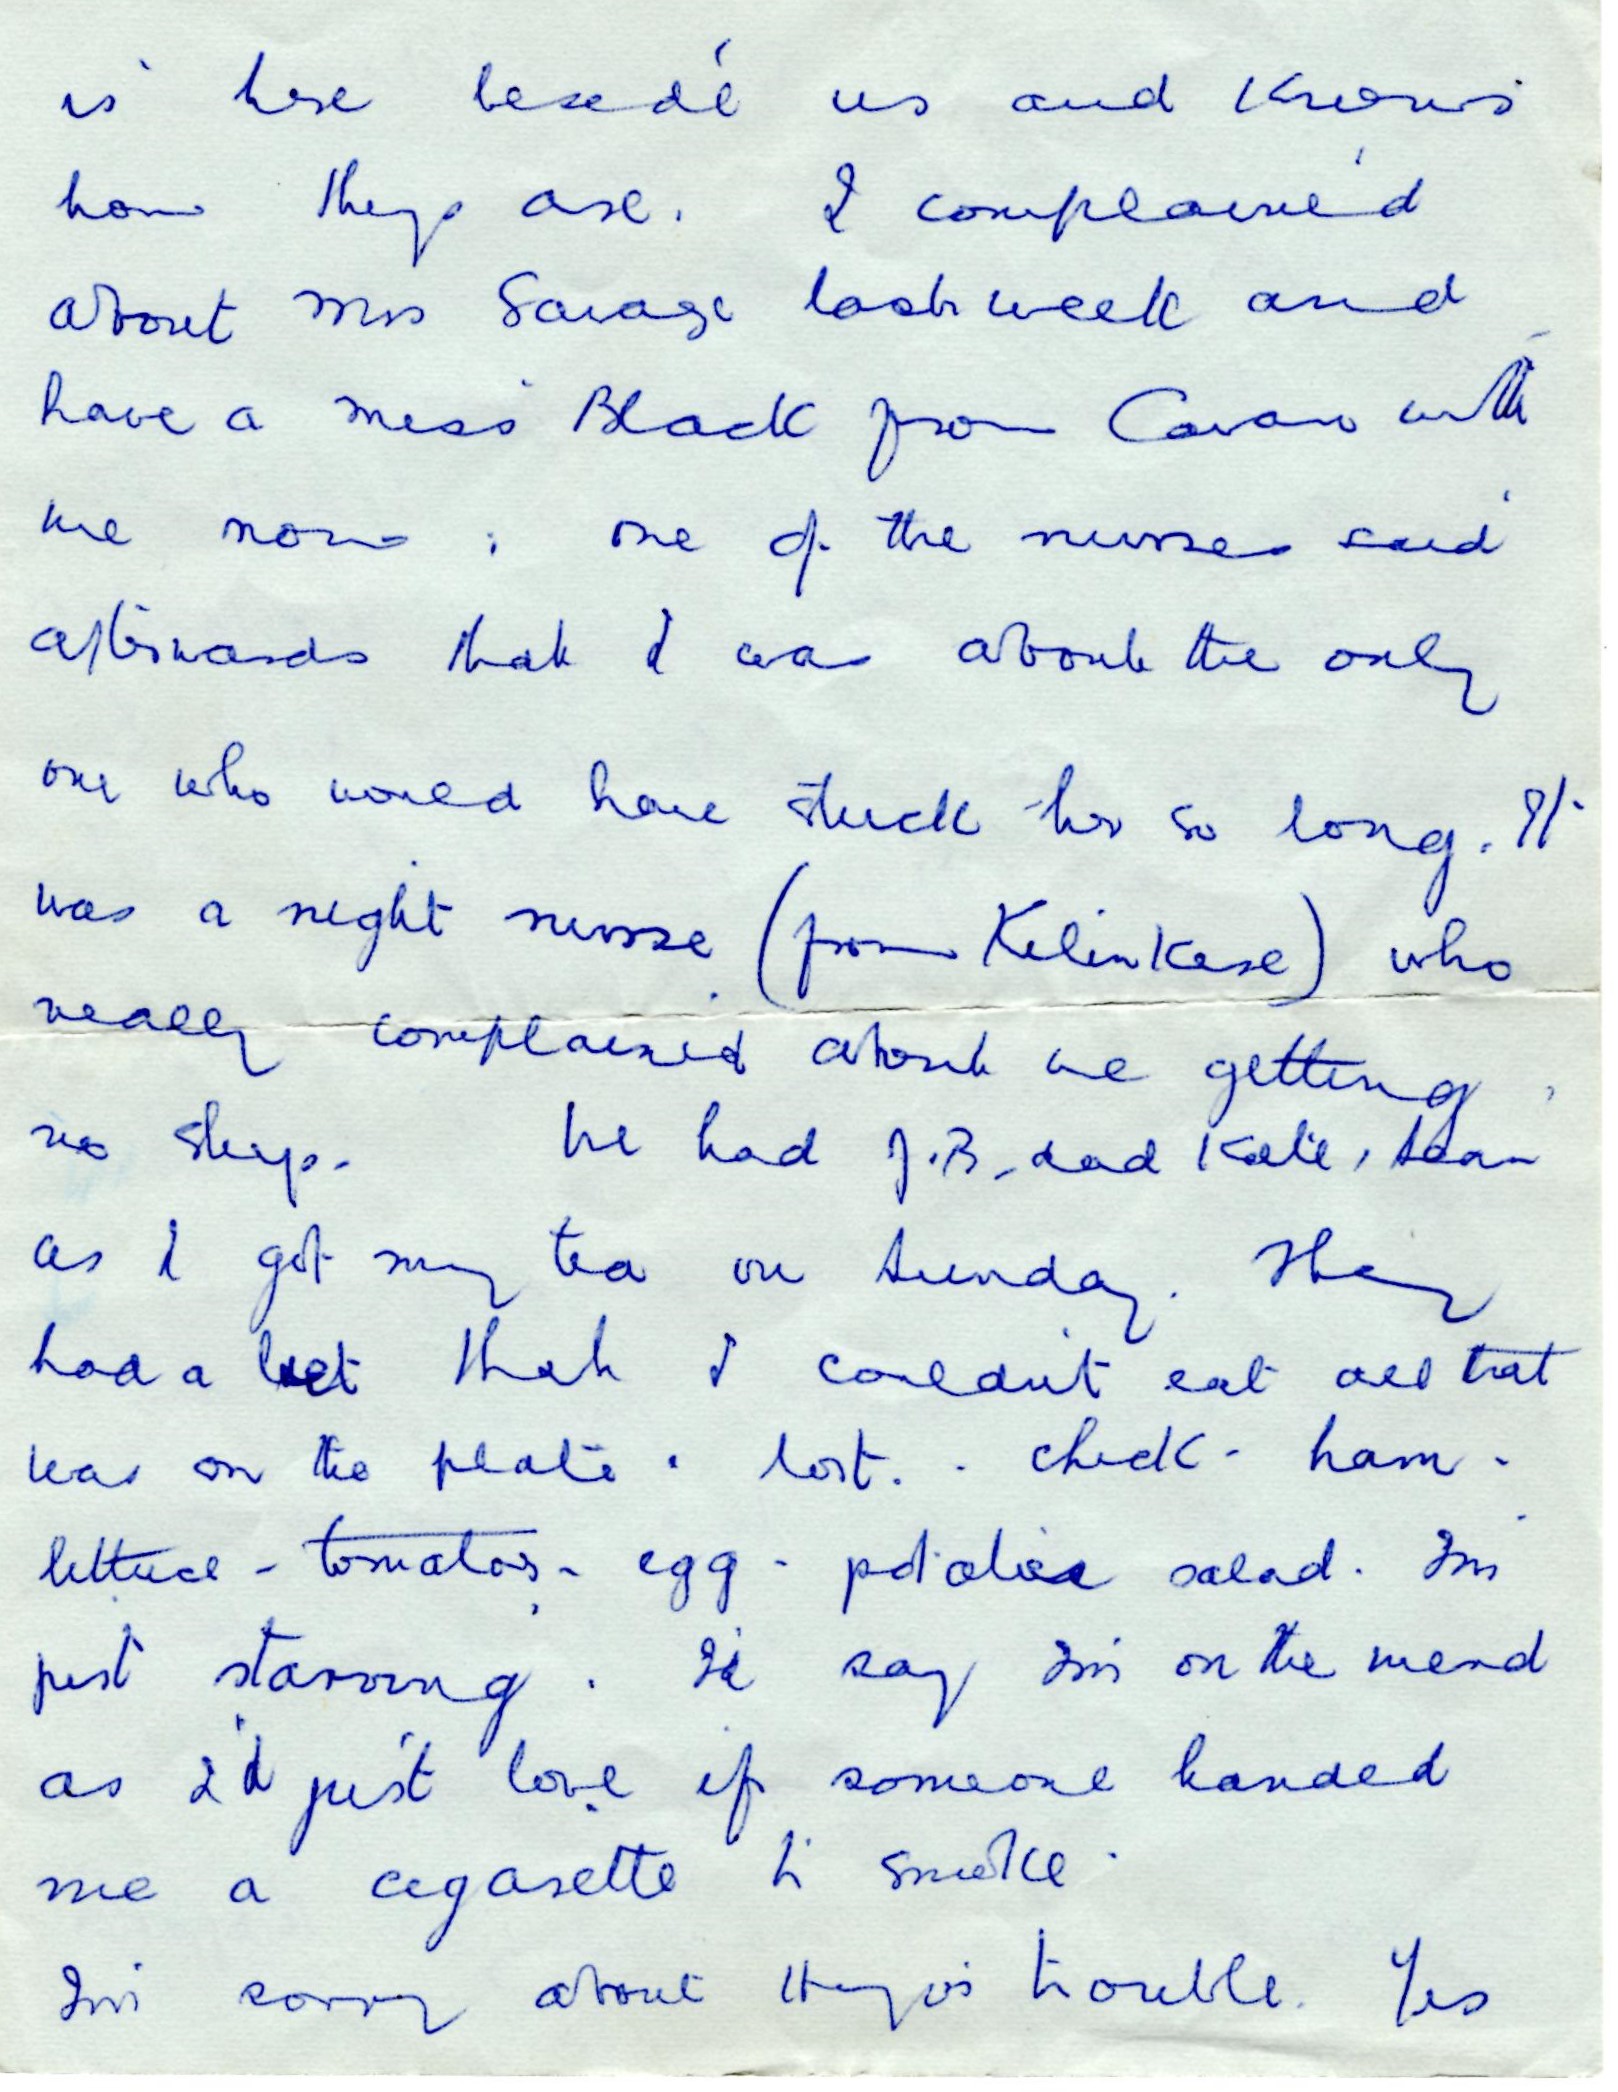 is here beside us and knows
how they are. I complained
about Mrs Savage last week and
have a Miss Black from Cavan with
me now; one of the nurses said
afterwards that I was about the only
one who would have stuck her so long. It
was a night nurse (from Kilinkere) who
really complained about me getting
no sleep. We had J.B., dad Katie, Sean
as I got my tea on Sunday. They
had a bet that I couldn't eat all that
was on the plate. lost. . chick - ham -
lettuce - tomatoes - egg - potatoe salad. I'm
just starving. I'd say I'm on the mend
as I'd just love if someone handed
me a cigarette to smoke.
I'm sorry about trouble. Yes